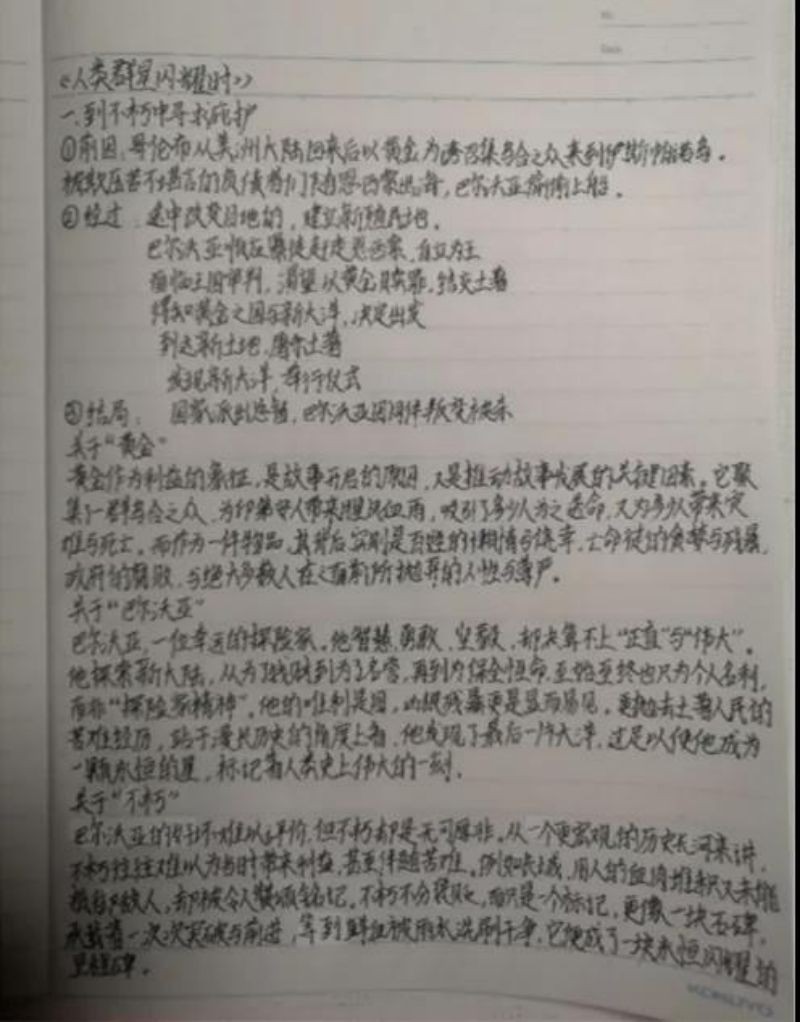 《人类群星闪耀时》
一、到不朽中寻求庇护
①前因：哥伦布从美洲大陆回来后以黄金为诱召集乌合之众来到伊斯帕尼奥岛。
被欺压苦不堪言的负债者们随恩西索出海，巴尔沃亚偷偷上船。
②经过：途中改变目的地，建立新殖民地。
巴尔沃亚恨在暴徒赶走恩西索，自立为王
面临王国审判，渴望以黄金赎罪，结交土著
得知黄金之国与新大洋，决定出发
到达新土地，屠杀土著
发现新大洋，举行仪式
③结局： 国家派到总督，巴尔沃亚因同伴叛变被杀
关于“黄金”
黄金作为利益的象征，是故事开启的原因，又是推动故事发展的关键因素。它聚
集了一群乌合之众，为印第安人带来腥风血雨，吸引了多少人为之送命，又为多少人带来灾
难与死亡。而作为一件物品，其背后实则是百姓的懒惰与侥幸，亡命徒的贪婪与残暴，
政府的腐败，与绝大多数人在之面前所抛弃的人性与尊严。
关于“巴尔沃亚”
巴尔沃亚，一位幸运的探险家。他智慧，勇敢，坚毅，却决算不上“正直”与“伟大”。
他探索新大陆，从为了钱财到为了名誉，再到为保全性命，至始至终也只为个人名利，
而非“探险家精神”。他的唯利是图，凶狠残暴更是显而易见。更抛去土著人民的
苦难经历，站于漫长历史的角度上看，他发现了最后一片大洋，这足以使他成为
一颗永恒的星，标记着人类史上伟大的一刻。
关于“不朽”
巴尔沃亚的好坏难以评价，但不朽却是无可厚非。从一个更宏观的历史长河来讲，
不朽往往难以为当时带来利益，甚至伴随苦难。例如长城，用人的血肉堆积又未能
敌人，却被令人赞颂铭记。不朽不分褒贬，而只是一个标记，更像一块石碑，
承载着一次次突破与前进，等到鲜血被雨水洗刷干净，它便成了一块永恒闪耀的
里程碑。
KOKUYO